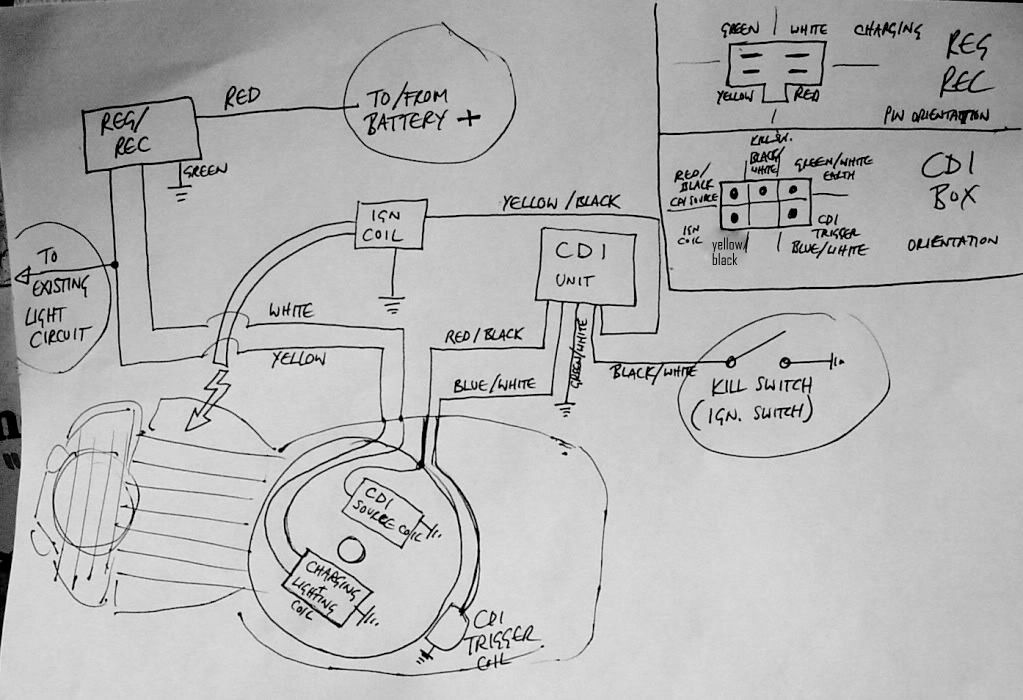 GREEN WHITE CHARGING
REG
REC
YELLOW RED
PIN ORIENTATION
RED
REG/
REC
TO/FROM
BATTERY +
GREEN
KILL SW.
BLACK/
WHITE
GREEN/WHITE
EARTH
RED/
BLACK
CDI SOURCE
CDI
BOX
IGN
COIL
yellow/
black
CDI
TRIGGER
BLUE/WHITE
ORIENTATION
IGN
COIL
YELLOW/BLACK
CDI
UNIT
TO
EXISTING
LIGHT
CIRCUIT
WHITE
YELLOW
RED/BLACK
BLUE/WHITE
GREEN/WHITE
BLACK/WHITE
KILL SWITCH
(IGN. SWITCH)
CDI
SOURCE COIL
CHARGING
+
LIGHTING
COIL
CDI
TRIGGER
COIL